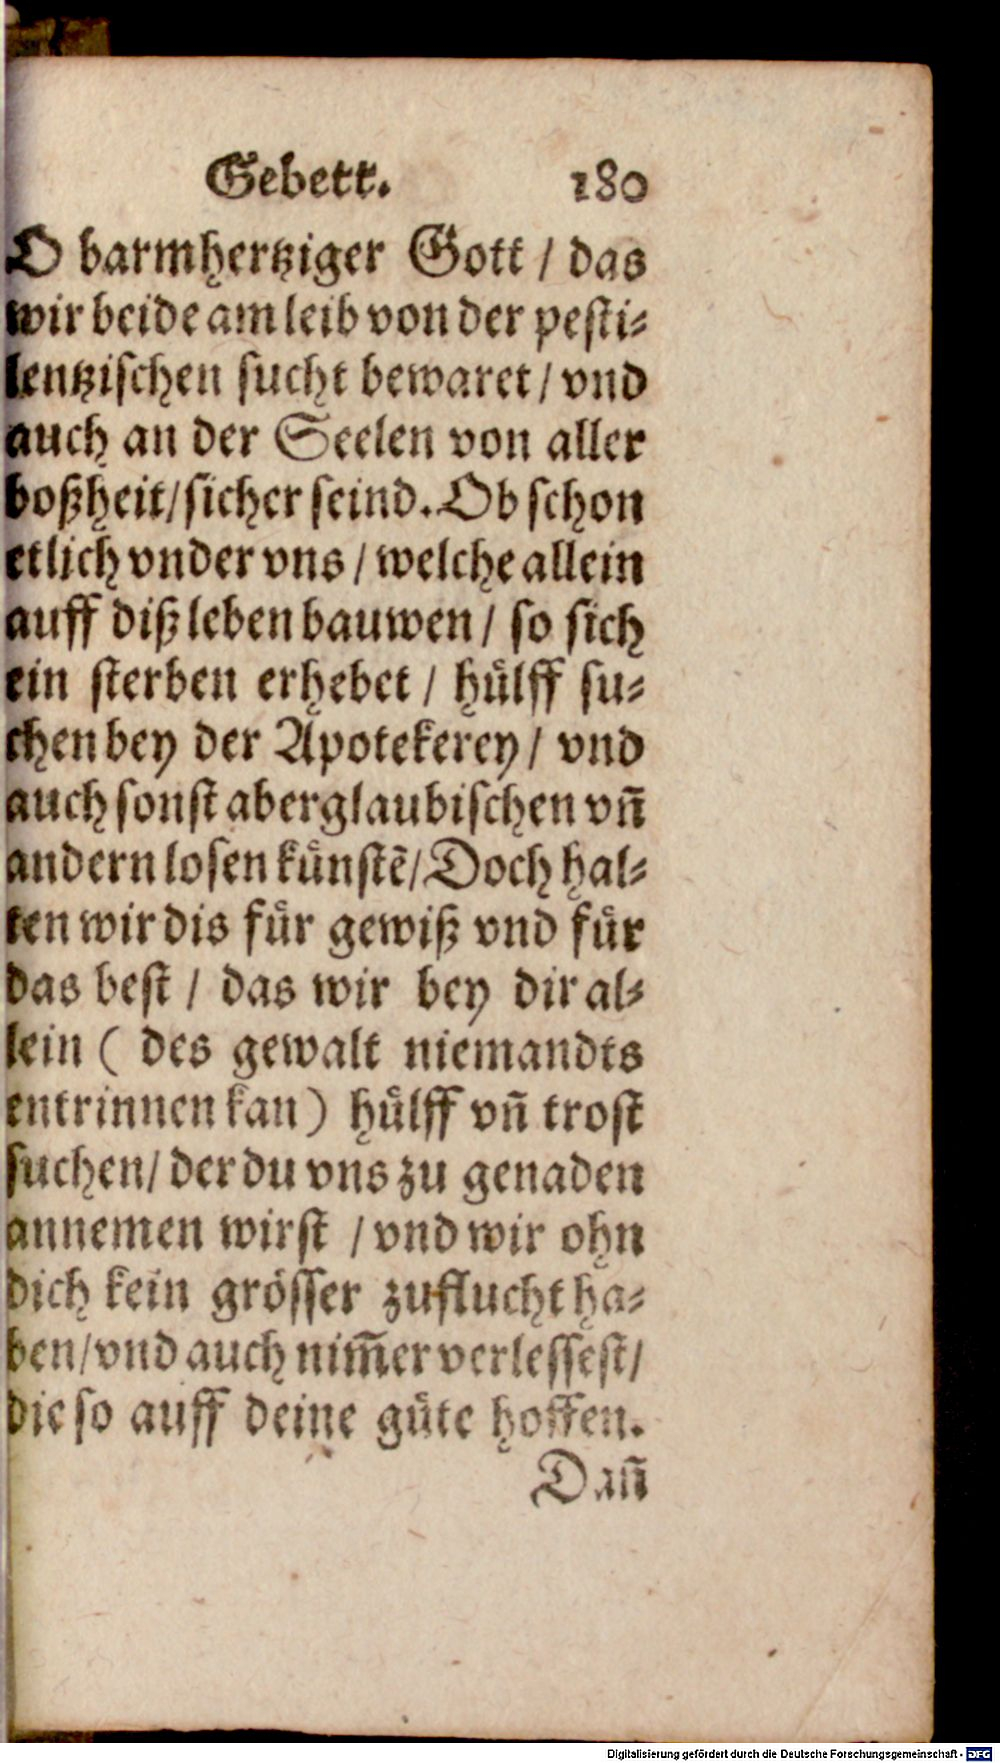 Gebett. 180
O barmhertziger Gott / das
wir beide am leib von der pesti-
lentzischen sucht bewaret / vnd
auch an der Seelen von aller
boßheit / sicher seind. Ob schon
etlich vnder vns / welche allein
auff diß leben bauwen / so sich
ein sterben erhebet / hülff su-
chen bey der Apotekerey / vnd
auch sonst aberglaubischen vñ
andern losen künstẽ / Doch hal-
ten wir dis für gewiß vnd für
das best / das wir bey dir al-
lein ( des gewalt niemandts
entrinnen kan ) hülff vñ trost
suchen / der du vns zu genaden
annemen wirst / vnd wir ohn
dich kein grösser zuflucht ha-
ben / vnd auch nim̃er verlessest /
die so auff deine güte hoffen.
Dañ
Digitalisierung gefördert durch die Deutsche Forschungsgemeinschaft - DFG